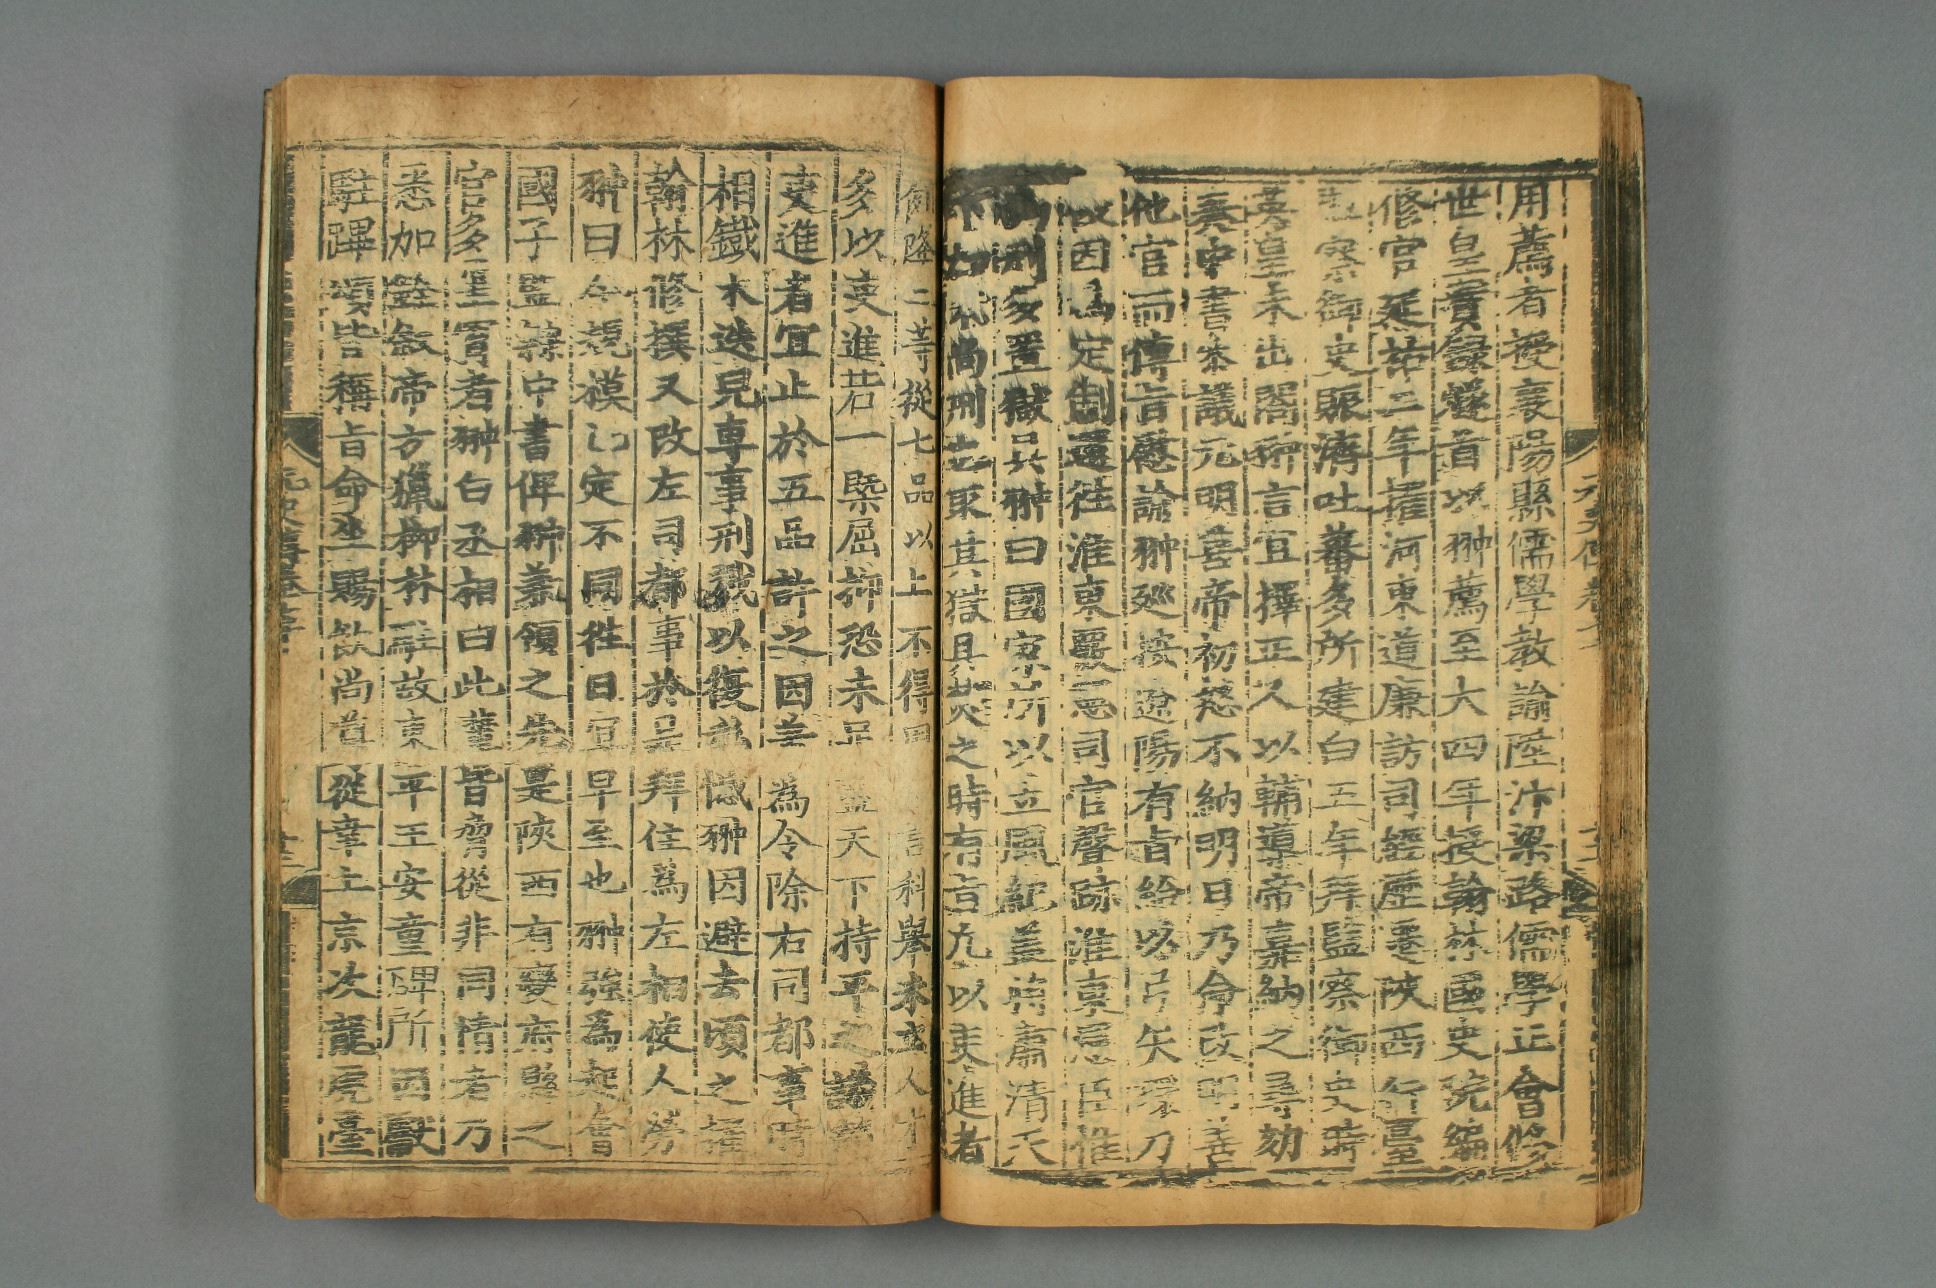 用薦者授襄陽縣儒學教諭陞汴梁路儒學正會修
世皇實錄燧首以翀薦至大四年授翰林國史院編
修官延祐二年擢河東道廉訪司經歷遷陝西行臺
監察御史賑濟吐蕃多所建白五年拜監察御史時
英皇未出閣翀言宜擇正人以輔導帝嘉納之尋劾
奏中書參議元明善帝初怒不納明日乃命改明善
他官而傳旨慰諭翀巡按遼陽有旨給以弓矢環刀
故因爲定制還往淮東覈憲司官聲跡淮東憲臣惟
尚刑多置獄具翀曰國家所以立風紀蓋將肅清天
下初不尚刑也取其獄具焚之時有旨凡以吏進者
例降二等從七品以上不得用 言科舉未立人才
多以吏進若一槩屈抑恐未足 盡天下持平之議
吏進者宜止於五品許之因著 爲令除右司都事時
相鐵木迭兒專事刑戮以復私 憾翀因避去頃之擢
翰林修撰又改左司都事於是 拜住爲左相使人勞
翀曰今規模已定不同往日宜 早至也翀強爲起會
國子監隸中書俾翀兼領之先 是陝西有變府縣之
官多罣罥者翀白丞相曰此輩 皆脅從非同情者乃
悉加銓叙帝方獵柳林駐故東 平王安童碑所因獻
駐蹕頌皆稱旨命坐賜飲尚尊 從幸上京次龍虎臺